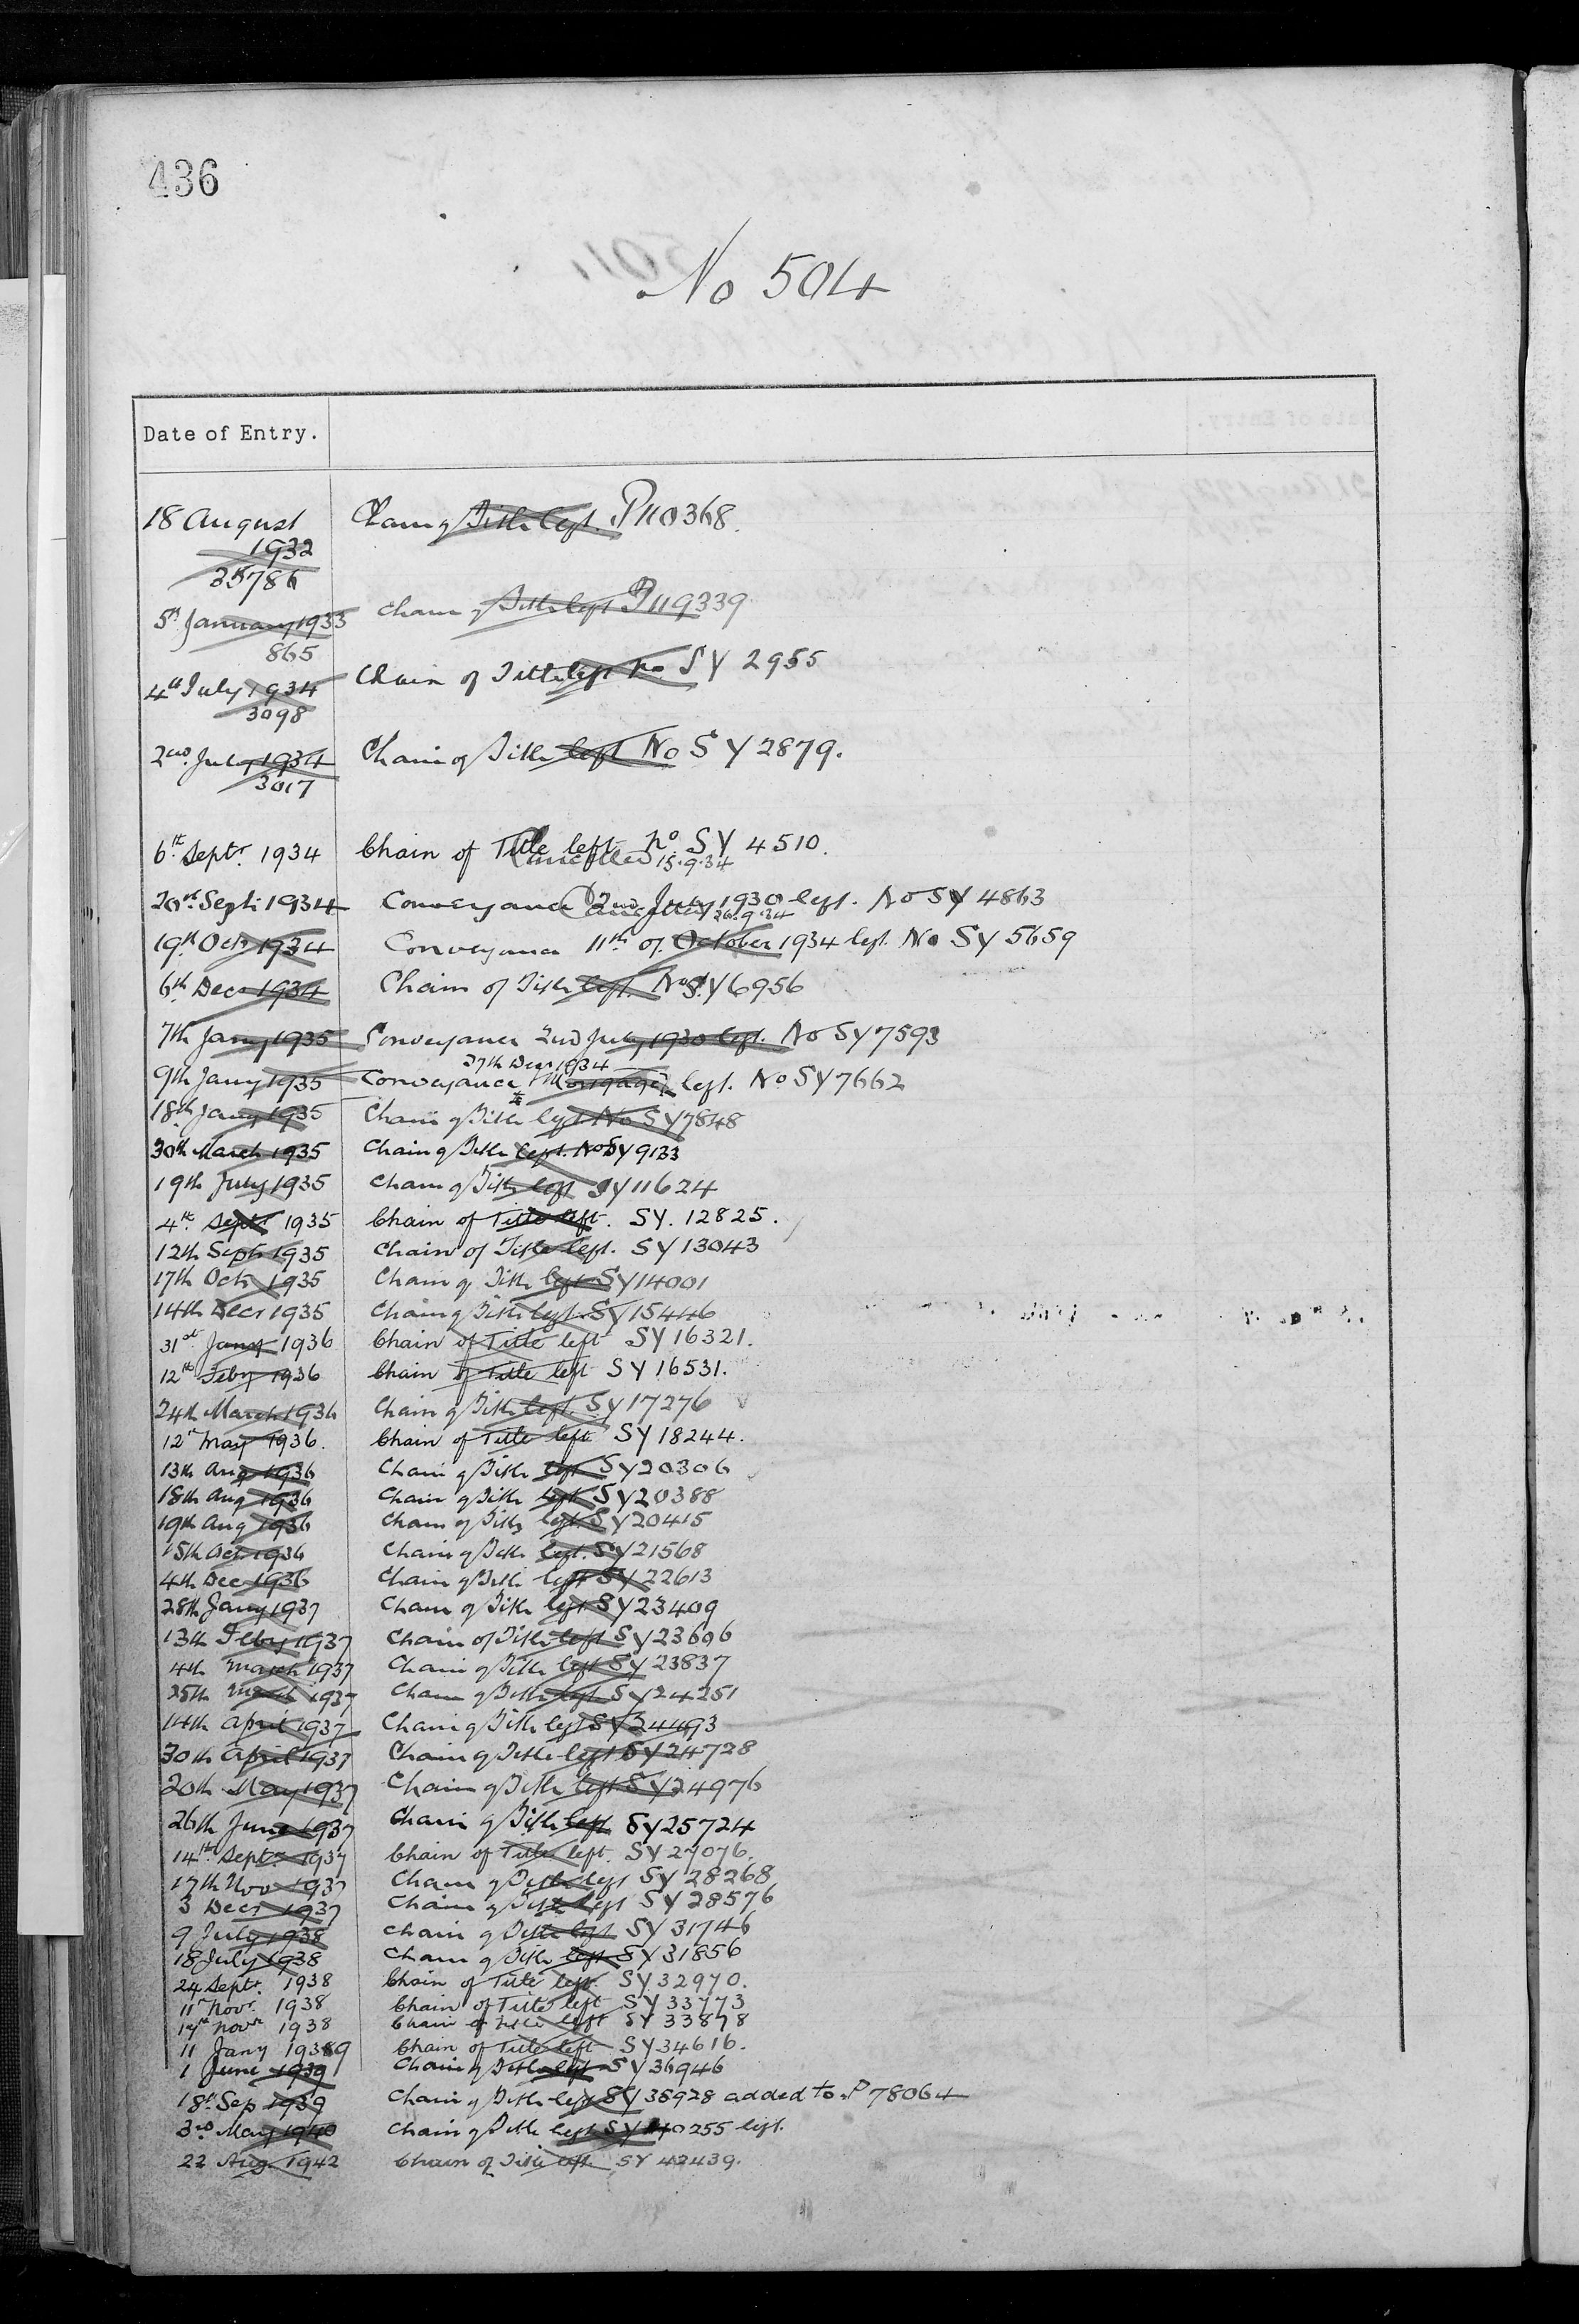 436
No 504
Date of Entry.
18 August Chain of Title left. P110368.
1932
35786
5th January 1933 Chain of Title left P119339
865
4th July 1934 Chain of Title left no SY 2955
3098
2nd July 1934 Chain of Title left No SY 2879.
3017
6th Septr. 1934 Chain of Title left no. SY 4510.
Cancelled 15.9.34
20th Sept 1934 Conveyance 2nd July 1930 left. No SY 4863
Cancelled 26.9.34
19th Oct 1934 Conveyance 11th of October 1934 left. No SY 5659
6th Decr 1934 Chain of Title left. No SY 6956
7th Jany 1935 Conveyance 2nd July 1930 left. No SY 7593
27th Decr 1934
9th Jany 1935 Conveyance & Mortgage left. No SY 7662
18th Jany 1935 Chain of Title left No SY 7848
30th March 1935 Chain of Title left. No SY 9133
19th July 1935 Chain of Title left SY 11624
4th Septr 1935 Chain of Title left. SY. 12825.
12th Sept 1935 Chain of Title left. SY 13043
17th Oct 1935 Chain of Title left SY 14001
14th Decr 1935 Chain of Title left SY 15446
31st Jany 1936 Chain of Title left SY 16321.
12th Feby 1936 Chain of Title left SY 16531.
24th March 1936 Chain of Title left. SY 17276
12th May 1936. Chain of Title left SY 18244.
13th Aug 1936 Chain of Title left SY 20306
18th Aug 1936 Chain of Title left SY 20388
19th Aug 1936 Chain of Title left SY 20415
15th Oct 1936 Chain of Title left. SY 21568
4th Dec 1936 Chain of Title left SY 22613
28th Jany 1937 Chain of Title left SY 23409
13th Feby 1937 Chain of Title left SY 23606
4th March 1937 Chain of Title left SY 23837
25th March 1937 Chain of Title left SY 24251
14th April 1937 Chain of Title left SY 24493
30th April 1937 Chain of Title left SY 24728
20th May 1937 Chain of Title left SY 24976
26th June 1937 Chain of Title left SY 25724
14th Septr 1937 Chain of Title left. SY 27076.
17th Nov 1937 Chain of Title left SY 28268
3 Decr 1937 Chain of Title left SY 28576
9 July 1938 Chain of Title left SY 31746
18 July 1938 Chain of Title left SY 31856
24 Septr. 1938 Chain of Title left. SY 32970.
11th Novr. 1938 Chain of Title left SY 33773
17th Novr 1938 Chain of Title left SY 33878
11 Jany 1939 Chain of Title left SY 34616.
1 June 1939 Chain of Title left SY 36946
18th Sep 1939 Chain of Title left SY 35928 added to P 78064
3rd May 1940 Chain of Title left SY 40255 left.
22 Aug. 1942 Chain of Title left. SY 42439.